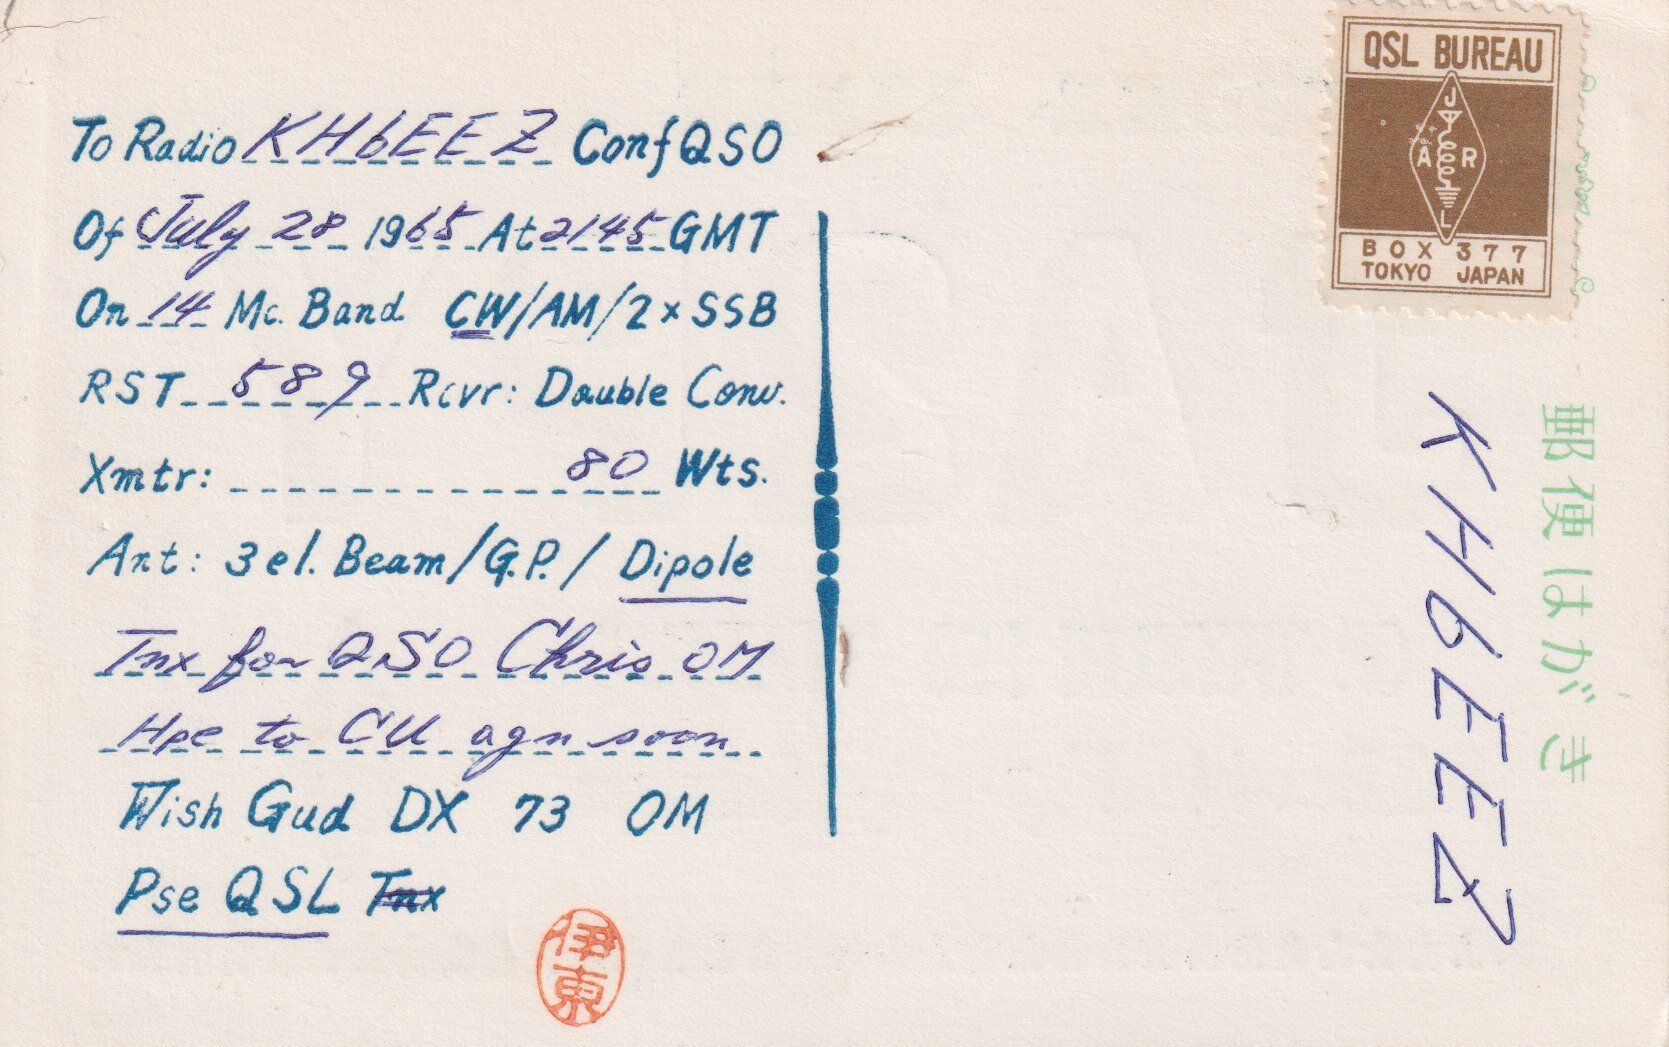 To Radio KH6EEZ Conf QSO
Of July 28 1965 At 2145 GMT
On 14 Mc. Band CW/AM/2×SSB
RST 589 Rcvr: Double Conv.
Xmtr: 80 Wts.
Ant: 3el. Beam/G.P./Dipole
Tnx for QSO Chris OM
Hpe to CU agn soon
Wish Gud DX 73 OM
Pse QSL Tnx
伊東
QSL BUREAU
J
A R
L
BOX 377
TOKYO JAPAN
郵便はがき
KH6EEZ